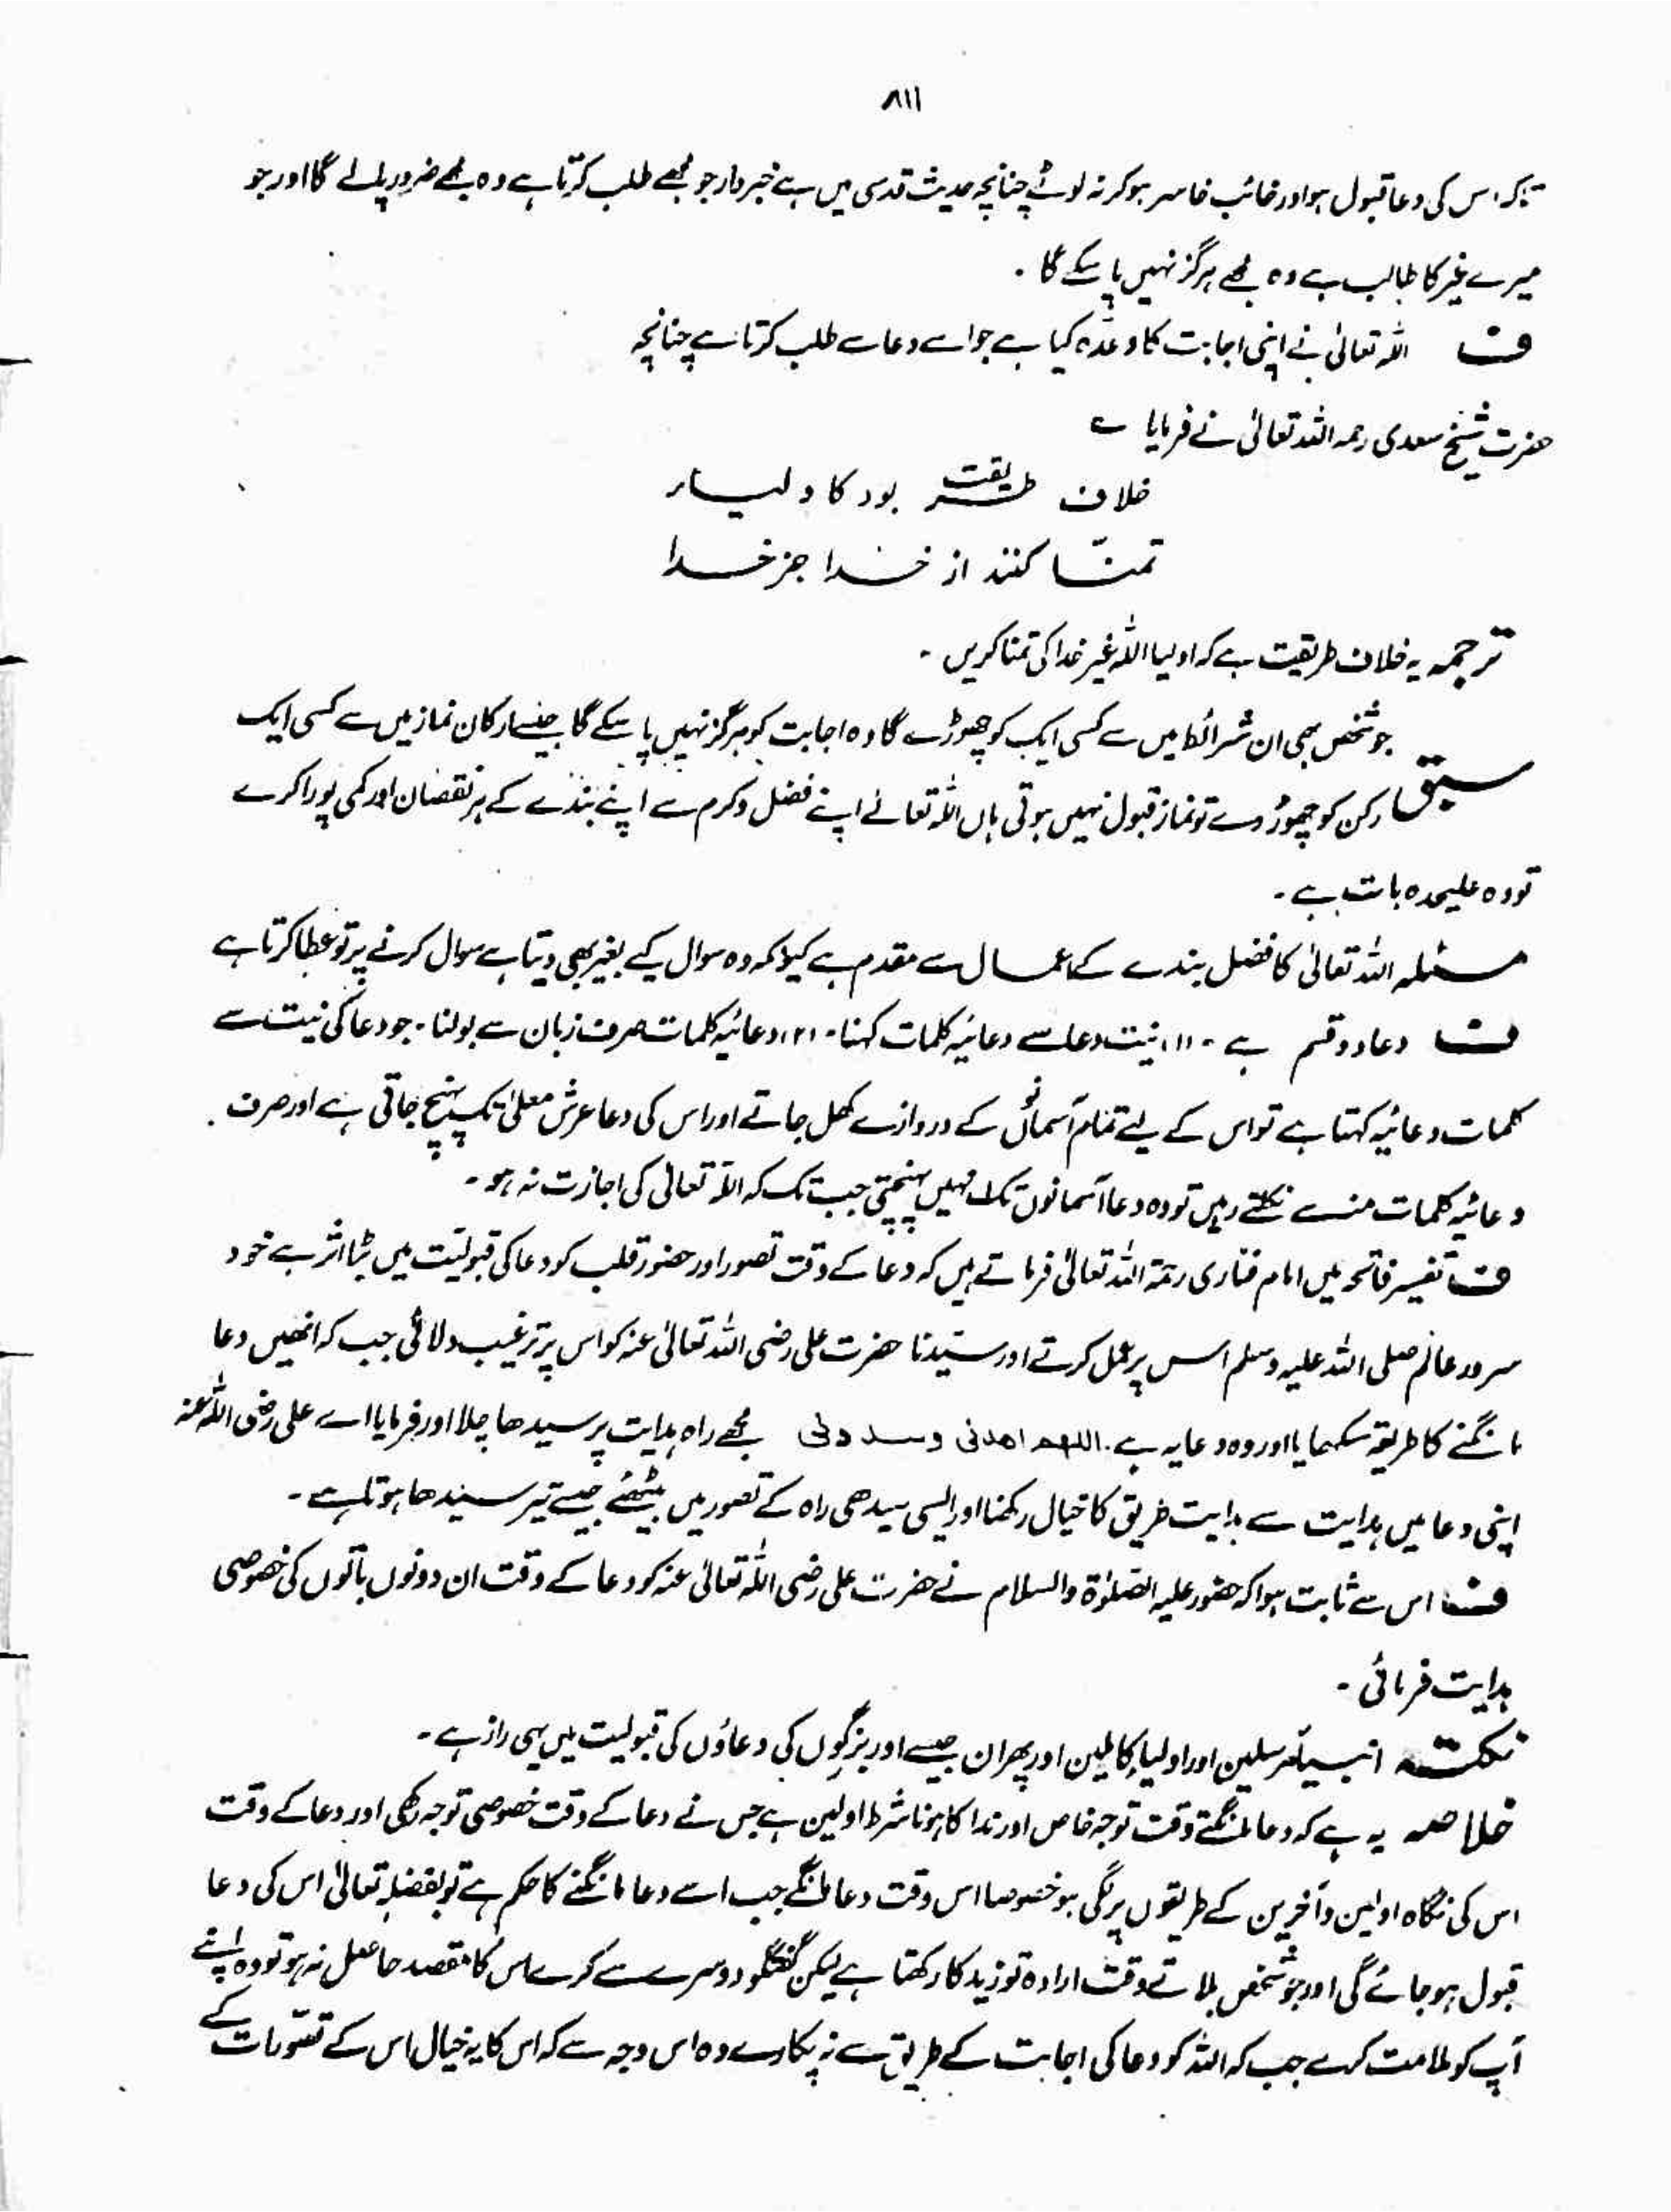 ۸۱۱
تاکہ اس کی دعا قبول ہو اور خائب خاسر ہوکر نہ لوٹے چنانچہ حدیث قدسی میں ہے خبردار جو مجھے طلب کرتا ہے وہ مجھے ضرور پالے گا اور جو
میرے غیر کا طالب ہے وہ مجھے ہرگز نہیں پا سکے گا ۔
ف اللہ تعالیٰ نے اپنی اجابت کا وعدہ کیا ہے جو اسے دعا سے طلب کرتا ہے چنانچہ
حضرت شیخ سعدی رحمہ اللہ تعالیٰ نے فرمایا ے
خلاف طریقت بود کاولیاء
تمنّا کنند از خدا جز خدا
ترجمہ یہ خلاف طریقت ہے کہ اولیا اللہ غیر خدا کی تمنا کریں ۔
جو شخص بھی ان شرائط میں سے کسی ایک کو چھوڑے گا وہ اجابت کو ہرگز نہیں پا سکے گا جیسے ارکان نماز میں سے کسی ایک
سبق رکن کو چھوڑ دے تو نماز قبول نہیں ہوتی ہاں اللہ تعالے اپنے فضل و کرم سے اپنے بندے کے ہر نقصان اور کمی پورا کرے
تو وہ علیحدہ بات ہے ۔
مسئلہ اللہ تعالیٰ کا فضل بندے کے اعمال سے مقدم ہے کیونکہ وہ سوال کیے بغیر بھی دیتا ہے سوال کرنے پر تو عطا کرتا ہے
ف دعا دو قسم ہے ۔ (۱) نیت دعا سے دعائیہ کلمات کہنا ۔ (۲) دعائیہ کلمات صرف زبان سے بولنا ۔ جو دعا کی نیت سے
کلمات دعائیہ کہتا ہے تو اس کے لیے تمام آسمانوں کے دروازے کھل جاتے اور اس کی دعا عرش معلیٰ تک پہنچ جاتی ہے اور صرف
دعائیہ کلمات منہ سے نکلتے رہیں تو وہ دعا آسمانوں تک نہیں پہنچتی جب تک کہ اللہ تعالیٰ کی اجازت نہ ہو ۔
ف تفسیر فاتحہ میں امام فناری رحمۃ اللہ تعالیٰ فرماتے ہیں کہ دعا کے وقت تصور اور حضور قلب کو دعا کی قبولیت میں بڑا اثر ہے خود
سرور عالم صلی اللہ علیہ وسلم اس پر عمل کرتے اور سیّدنا حضرت علی رضی اللہ تعالیٰ عنہ کو اس پر ترغیب دلائی جب کہ انھیں دعا
مانگنے کا طریقہ سکھایا اور وہ دعا یہ ہے ۔ اللهم اهدنی وسددنی مجھے راہ ہدایت پر سیدھا چلا اور فرمایا اے علی رضی اللہ عنہ
اپنی دعا میں ہدایت سے ہدایت طریق کا خیال رکھنا اور ایسی سیدھی راہ کے تصور میں بیٹھئے جیسے تیر سیدھا ہوتا ہے ۔
ف اس سے ثابت ہوا کہ حضور علیہ الصلوٰۃ والسلام نے حضرت علی رضی اللہ تعالیٰ عنہ کو دعا کے وقت ان دونوں باتوں کی خصوصی
ہدایت فرمائی ۔
نکتہ انبیاء مرسلین اور اولیاء کاملین اور پھر ان جیسے اور بزرگوں کی دعاؤں کی قبولیت میں یہی راز ہے ۔
خلاصہ یہ ہے کہ دعا مانگتے وقت توجہ خاص اور ندا کا ہونا شرط اولین ہے جس نے دعا کے وقت خصوصی توجہ رکھی اور دعا کے وقت
اس کی نگاہ اولین و آخرین کے طریقوں پر لگی ہو خصوصا اس وقت دعا مانگے جب اسے دعا مانگنے کا حکم ہے تو بفضلہ تعالیٰ اس کی دعا
قبول ہو جائے گی اور جو شخص بلاتے وقت ارادہ تو زید کا رکھتا ہے لیکن گفتگو دوسرے سے کرے اس کا مقصد حاصل نہ ہو تو وہ اپنے
آپ کو ملامت کرے جب کہ اللہ کو دعا کی اجابت کے طریق سے نہ پکارے وہ اس وجہ سے کہ اس کا یہ خیال اس کے تصورات کے